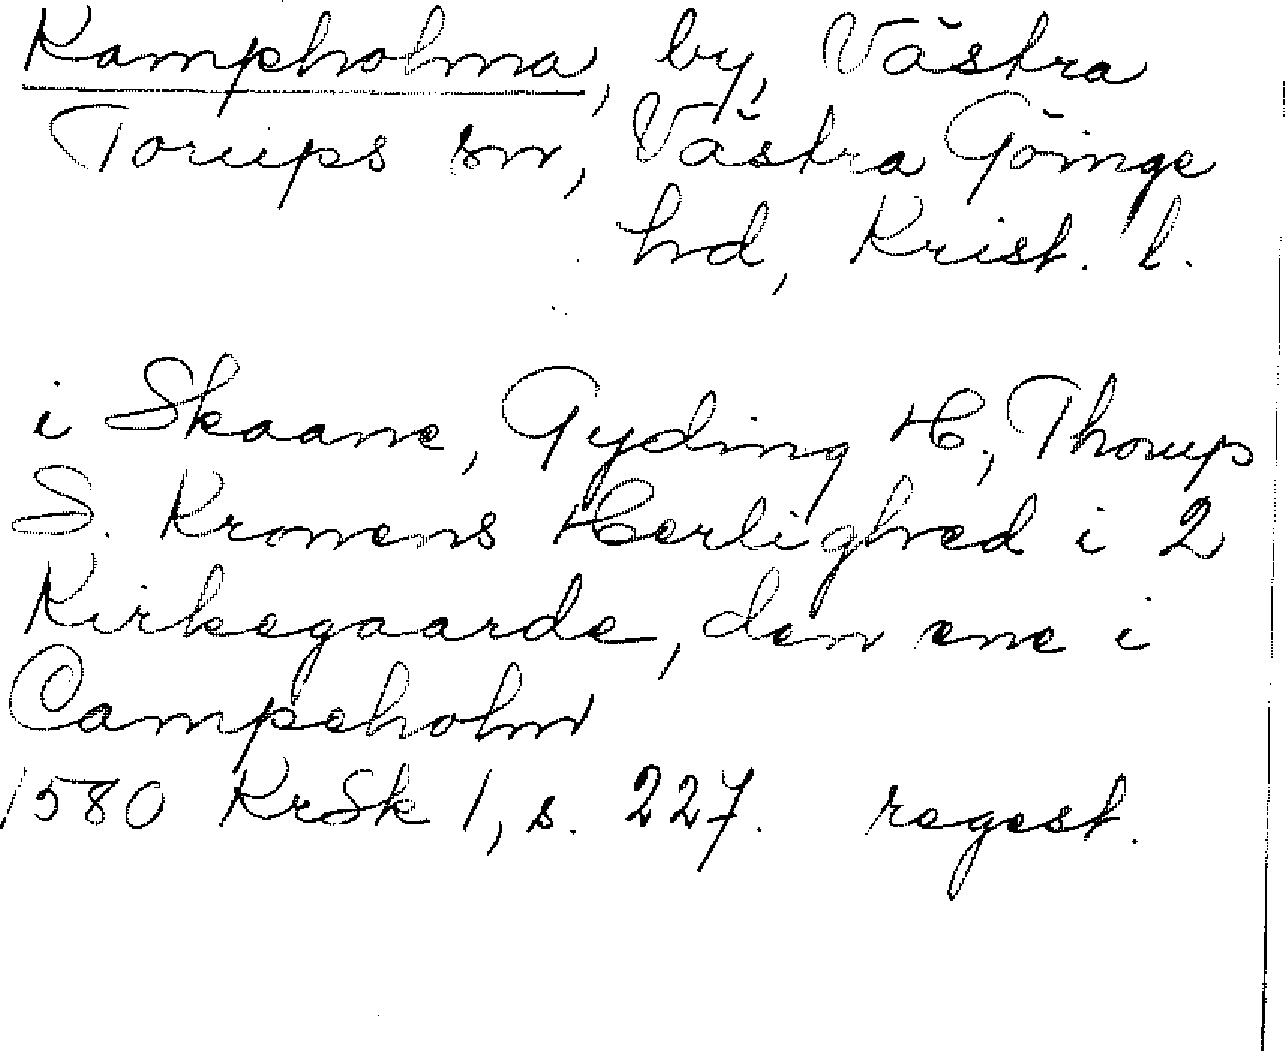 Kampholma, by, Västra
Torups sn, Västra Göinge
hd, Krist. l.
i Skaane, Gyding H, Thorups
S. Kronens Herlighed i 2
Kirkegaarde, den ene i
Campeholm
1580 KrSk 1, s. 227. regest.